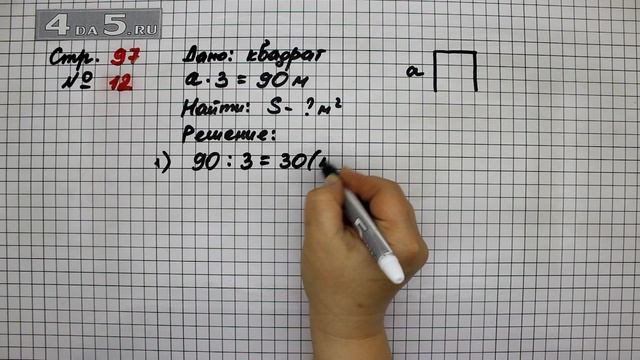 4 DA 5.RU
Стр. 97
№ 12
Дано: квадрат
a · 3 = 90 м
Найти: S - ? м²
Решение:
1) 90 : 3 = 30 (
a